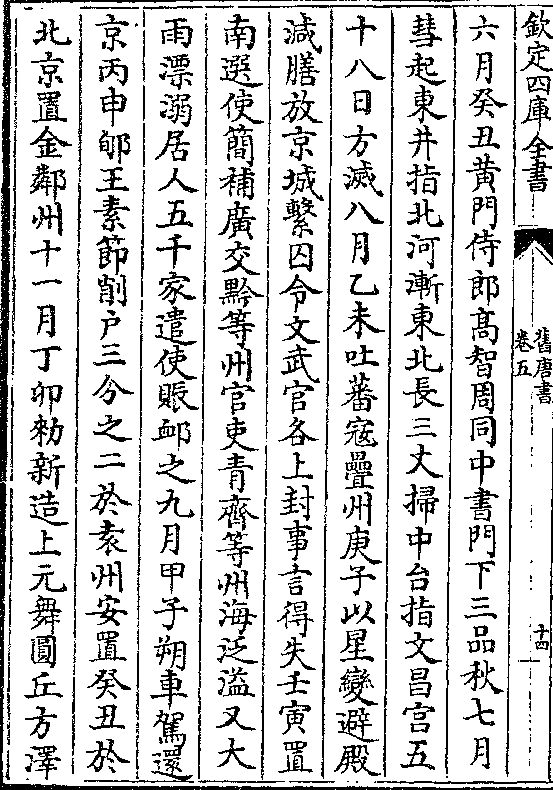 欽定四庫全書
舊唐書
卷五
十四
六月癸丑黄門侍郎髙智周同中書門下三品秋七月
彗起東井指北河漸東北長三丈掃中台指文昌宫五
十八日方滅八月乙未吐蕃宼疊州庚子以星變避殿
減膳放京城繫囚令文武官各上封事言得失壬寅置
南選使簡補廣交黔等州官吏青齊等州海泛溢又大
雨漂溺居人五千家遣使賑䘏之九月甲子朔車駕還
京丙申郇王素節削户三分之二於袁州安置癸丑於
北京置金鄰州十一月丁卯勑新造上元舞圓丘方澤